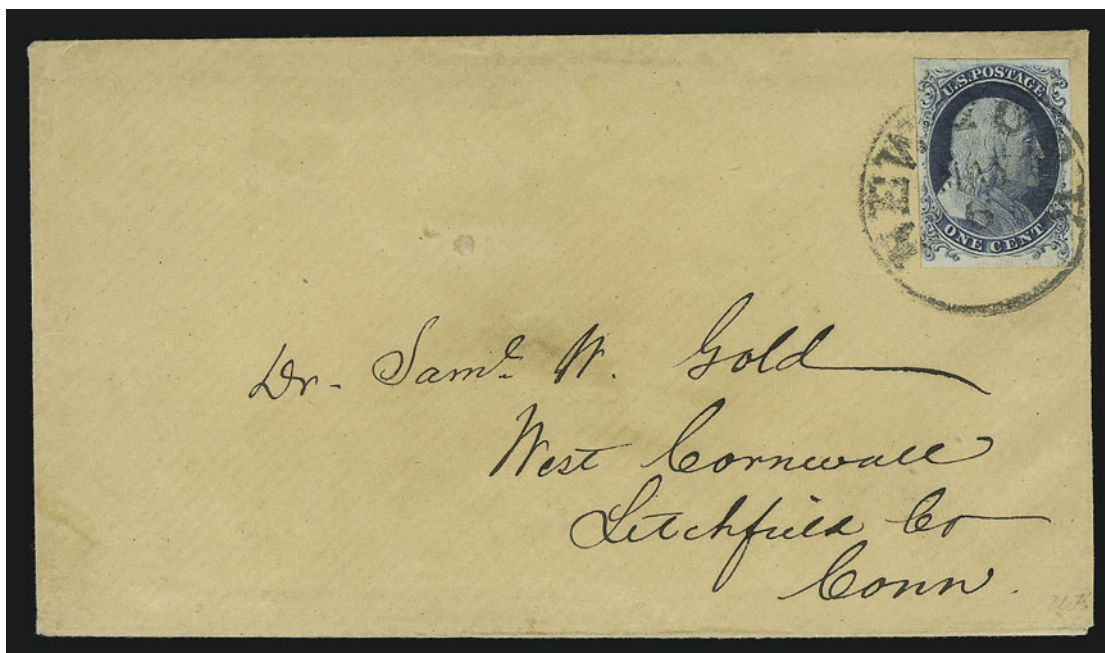 U.S. POSTAGE
ONE CENT
NEW YORK
Dr- Saml. W. Gold
West Cornwall
Litchfield Co
Conn.